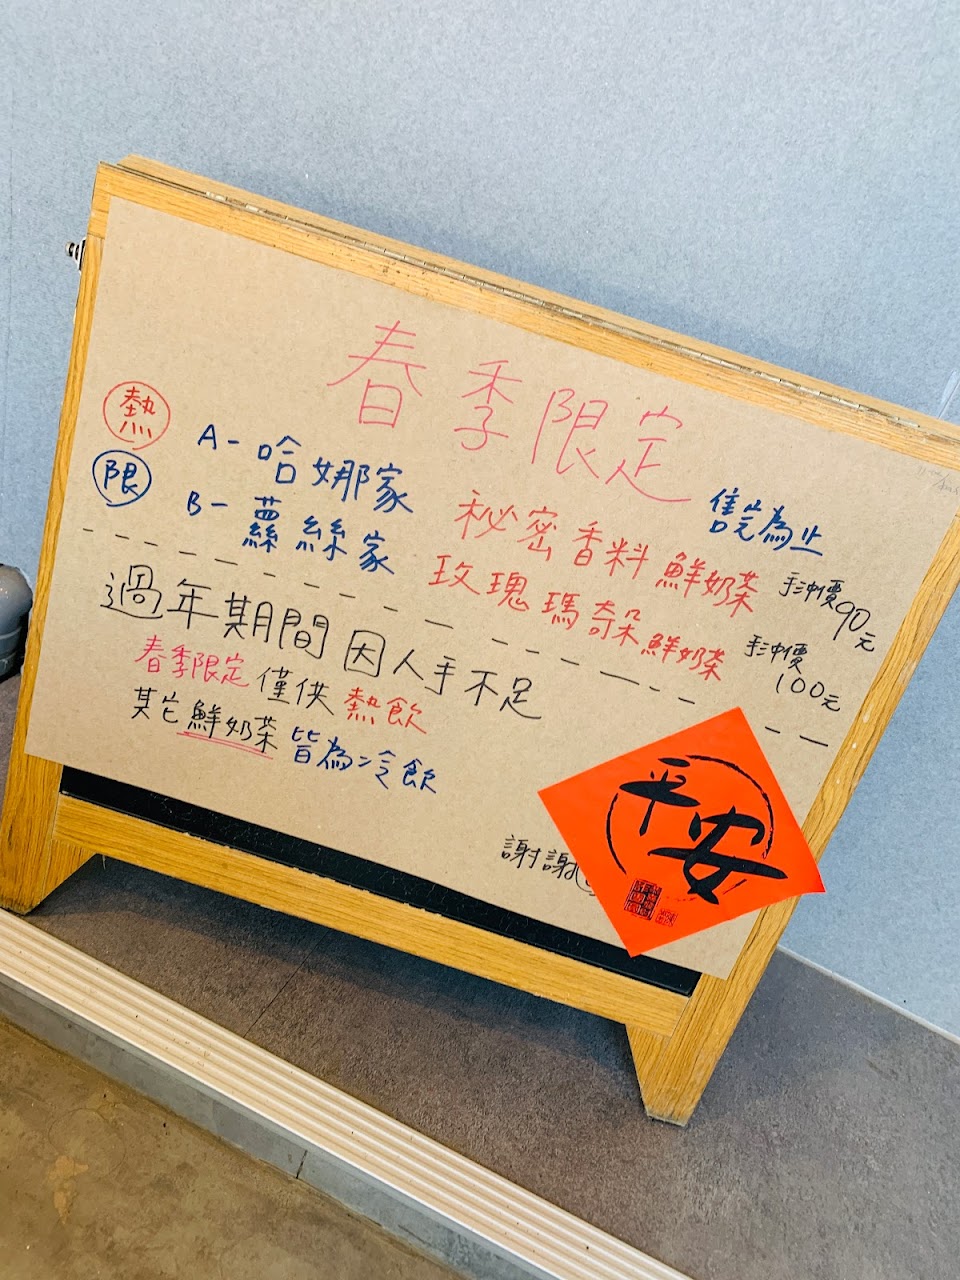 春季限定
售完為止
熱
限
A-哈娜家 秘密香料鮮奶茶 手沖價90元
B-蕬絲家 玫瑰瑪奇朵鮮奶茶 手沖價100元
過年期間因人手不足
春季限定僅供熱飲
其它鮮奶茶皆為冷飲
謝謝
平安